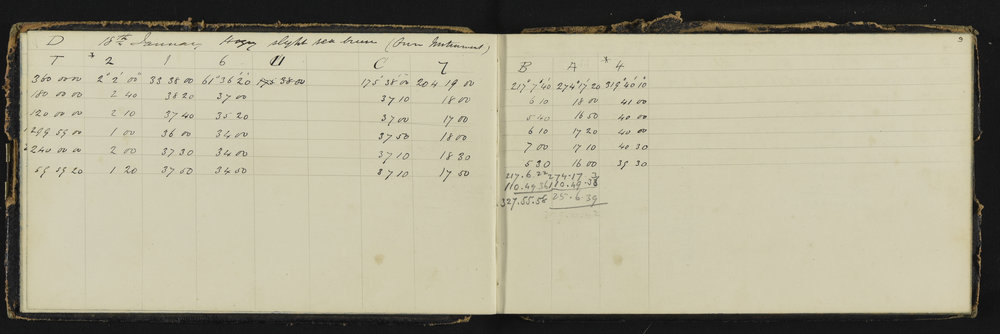 D 18th January slight sea breeze (Own Instrument) 9
T * 2 1 6 U C 7 B A * 4
360 00 00 2° 2' 00" 33 38 00 61° 36' 20 38 00 175° 38' 00" 204 19 00 217° 7' 40 274° 17' 20 319° 40' 10
180 00 00 2 40 38 20 37 00 37 10 18 00 6 10 18 00 41 00
120 00 00 2 10 37 40 35 20 37 00 17 00 5 40 16 50 40 00
299 59 00 1 00 36 00 34 00 37 50 18 00 6 10 17 20 40 00
240 00 00 2 00 37 30 34 00 37 10 18 30 7 00 17 10 40 30
59 59 20 1 20 37 00 34 50 37 10 17 50 5 30 16 00 39 30
217.6.22 274.17
110.49.36 110.49.38
327.55.56 25.6.39